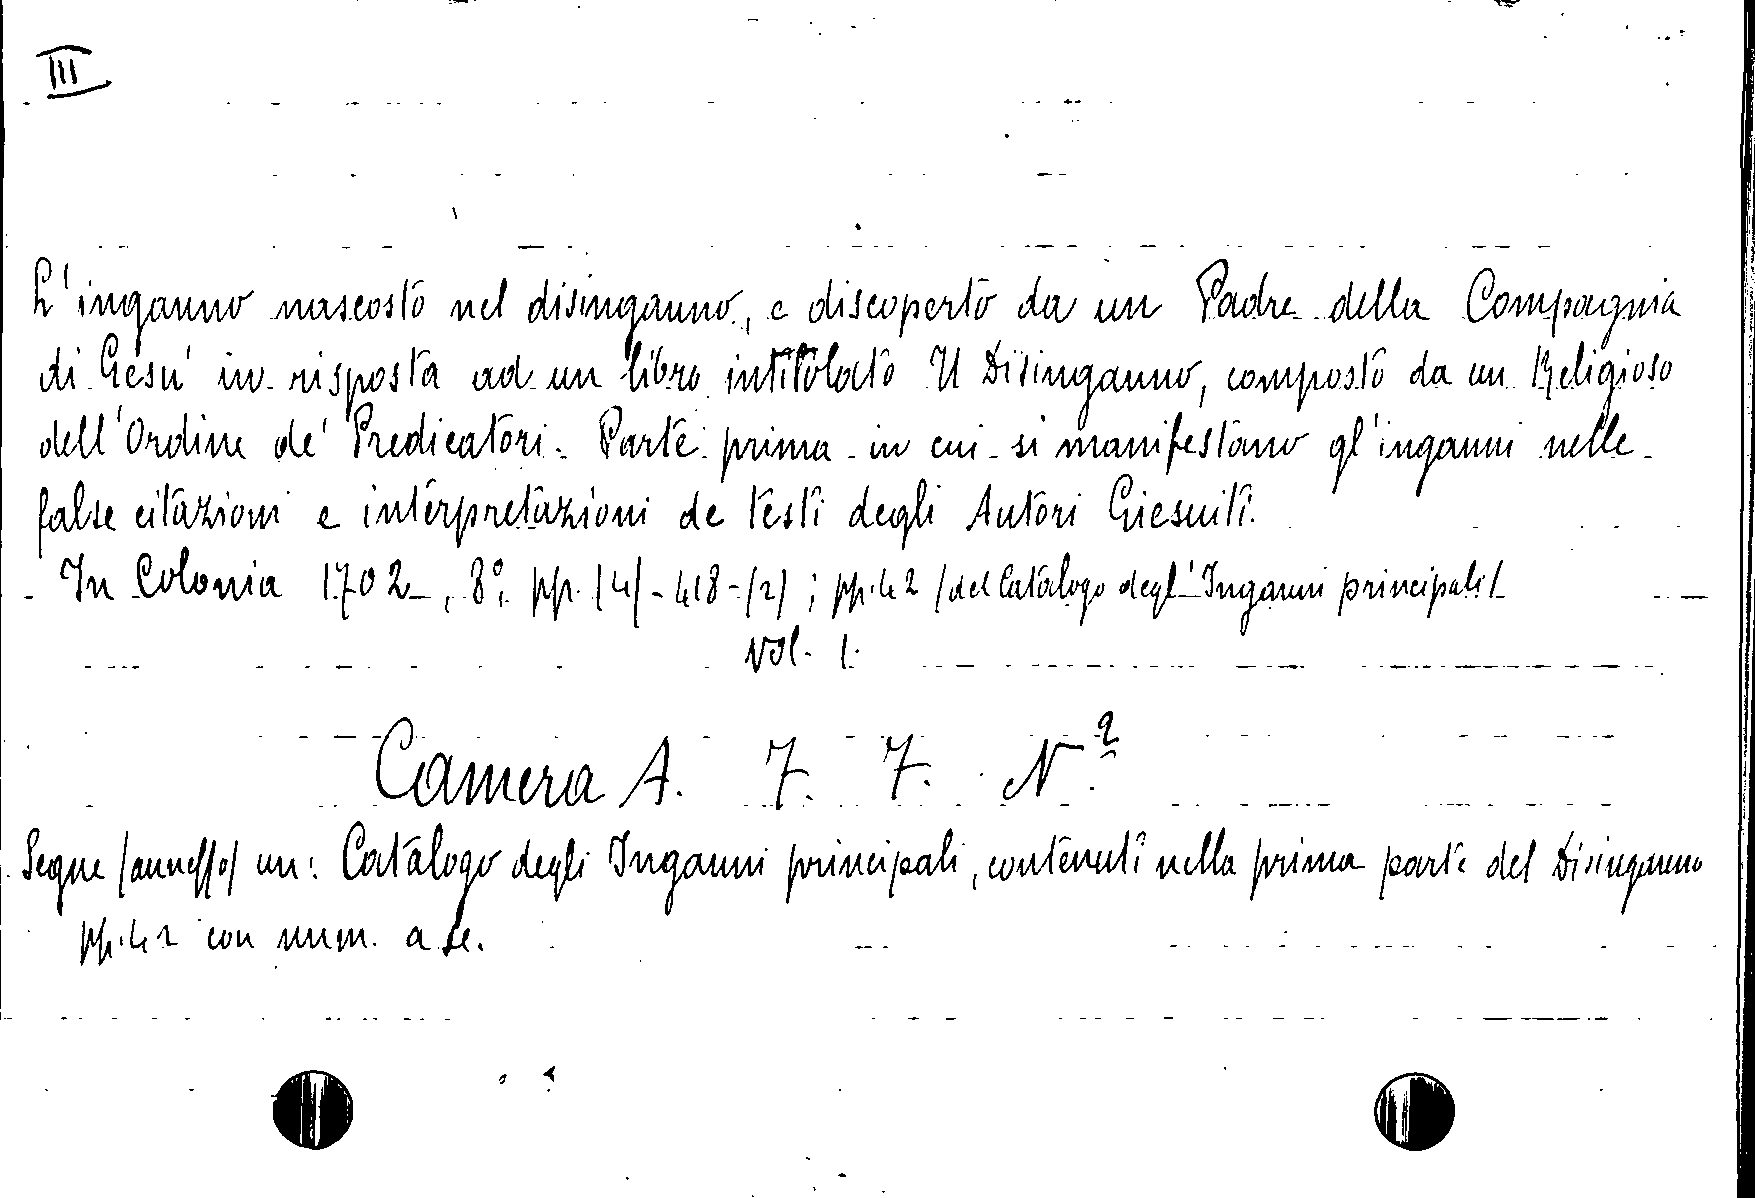 III
L'inganno nascosto nel disinganno, e discoperto da un Padre della Compagnia
di Gesu' in risposta ad un libro intitolato Il Disinganno, composto da un Religioso
dell'Ordine de' Predicatori. Parte prima in cui si manifestano gl'inganni nelle
false citazioni e interpretazioni de testi degli Autori Giesuiti.
In Colonia 1702, 8º, pp. /4/-418-/2/; pp. 42 /del Catalogo degl'Inganni principali/
Vol. 1.
Camera A. 7. 7. Nº
Segue /annesso/ un: Catalogo degli Inganni principali, contenuti nella prima parte del Disinganno
pp. 42 con num. a se.